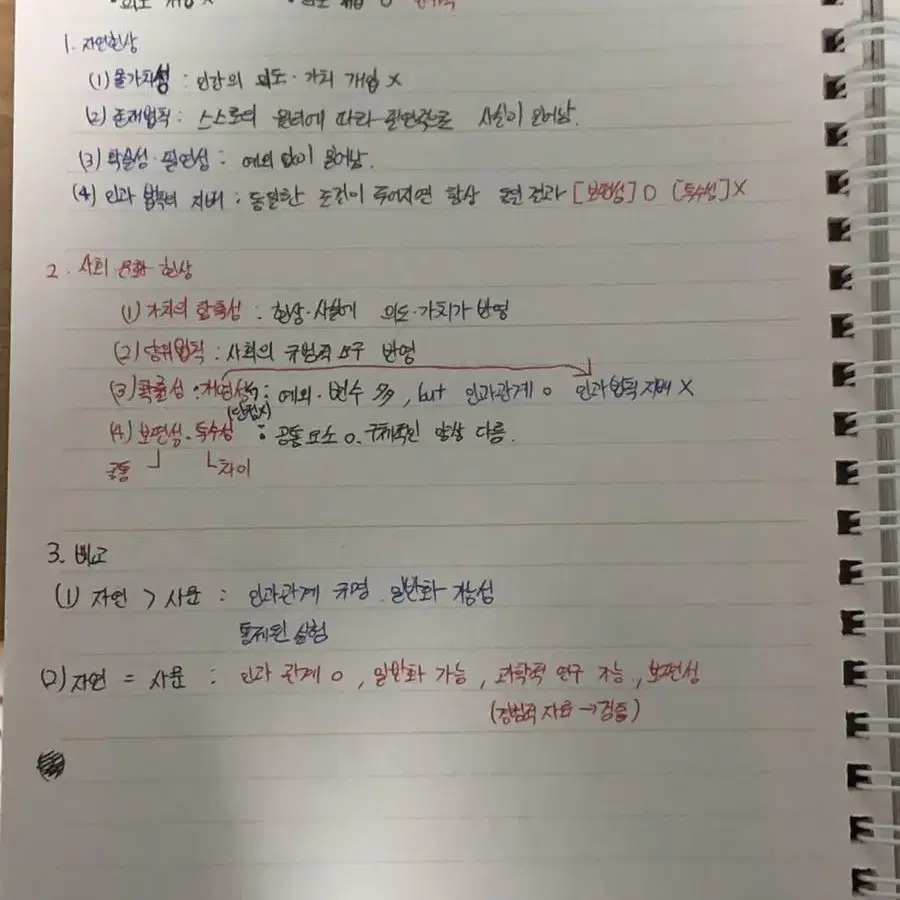 1. 자연현상
(1) 몰가치성 : 인간의 의도·가치 개입 X
(2) 존재법칙 : 스스로의 원리에 따라 필연적으로 사실이 일어남.
(3) 확실성·필연성 : 예외 없이 일어남.
(4) 인과 법칙의 지배 : 동일한 조건이 주어지면 항상 동일 결과 [보편성] O [특수성] X
2. 사회 문화 현상
(1) 가치의 함축성 : 현상·사실에 의도·가치가 반영
(2) 당위법칙 : 사회의 규범적 요구 반영
(3) 확률성·개연성 : 예외·변수 多, but 인과관계 O 인과법칙 지배 X
(4) 보편성·특수성 : 공통 요소 O. 구체적인 양상 다름.
공통 차이
3. 비교
(1) 자연 > 사문 : 인과관계 규명. 일반화 가능성
통제된 실험
(2) 자연 = 사문 : 인과 관계 O, 일반화 가능, 과학적 연구 가능, 보편성
(경험적 자료 → 검증)